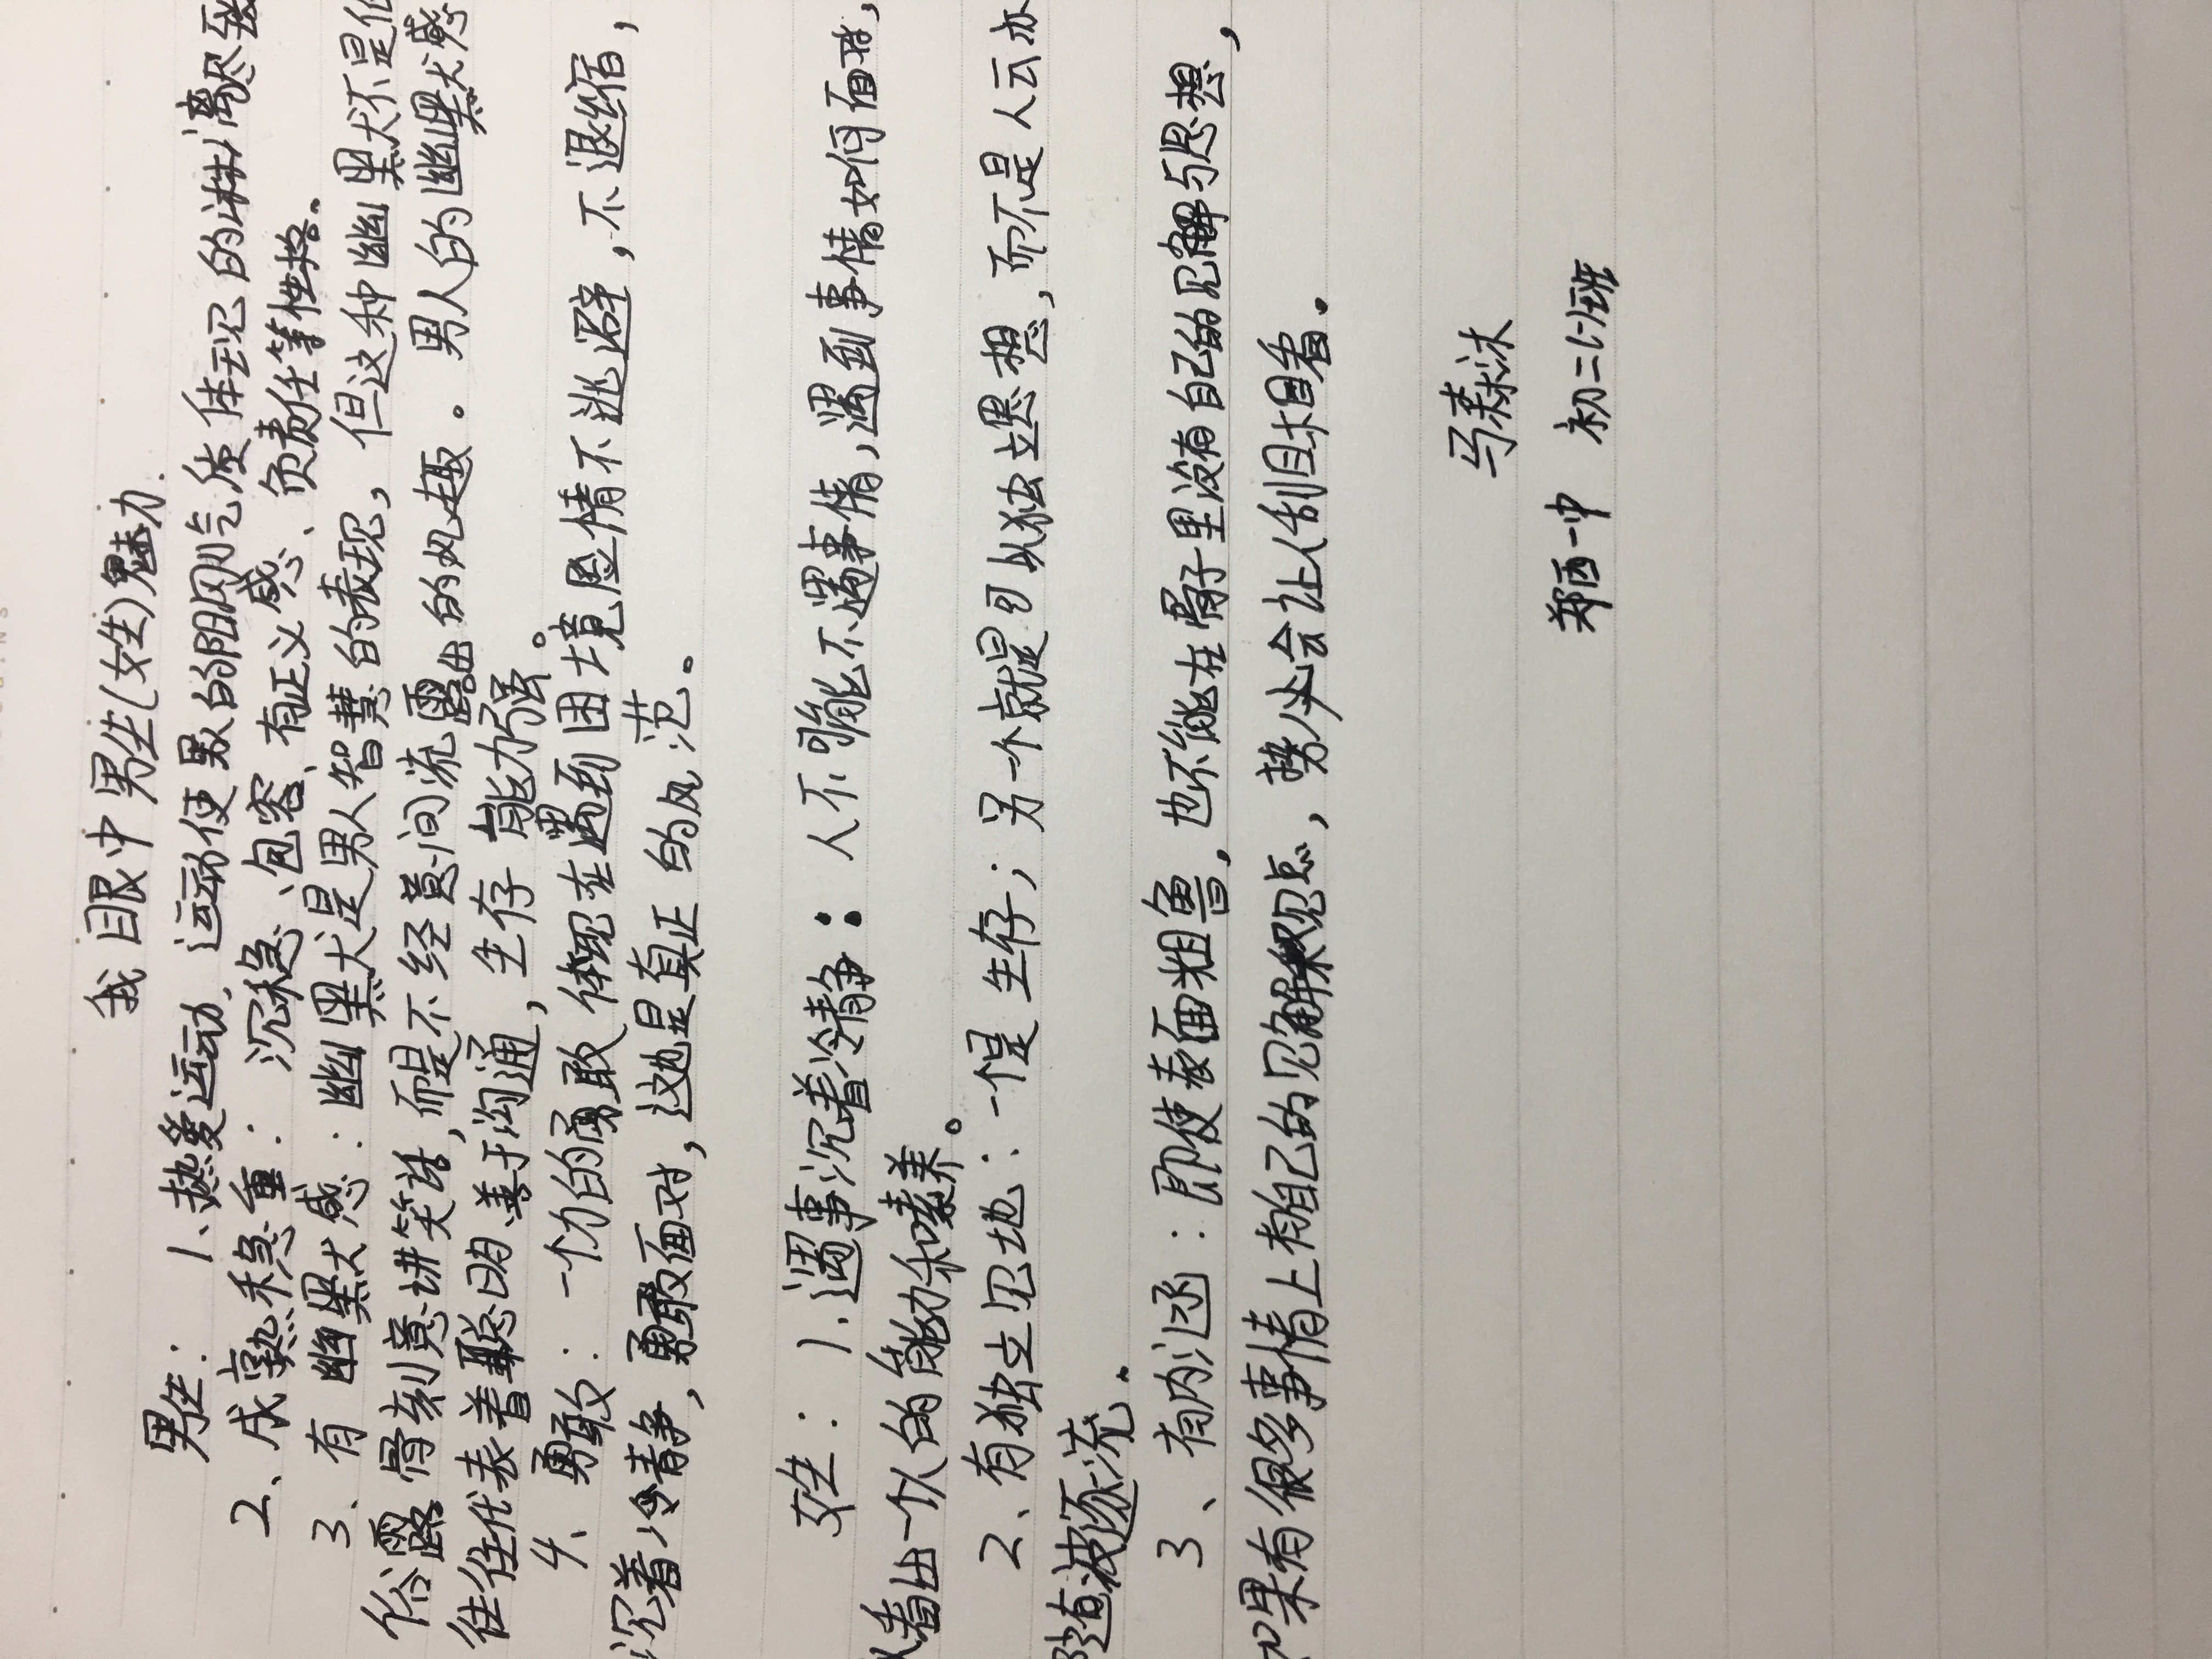 我眼中男生(女生)魅力.
男生: 1、热爱运动, 运动使男人的阳刚气质体现的淋漓尽致
2、成熟稳重: 沉稳、包容、有正义感、负责任等性格。
3、有幽默感: 幽默是男人智慧的表现, 但这种幽默不是低
俗露骨刻意讲笑话, 而是不经意间流露出的风趣。男人的幽默感
往往代表着聪明、善于沟通, 生存能力强。
4、勇敢: 一个人的勇敢体现在遇到困境险情不逃避, 不退缩,
沉着冷静, 勇敢面对, 这也是真正的风范。
女生: 1、遇事沉着冷静: 人不可能不遇事情, 遇到事情如何面对,
看出一个人的能力和素养。
2、有独立见地: 一个是生存; 另一个就是可以独立思想, 而不是人云亦
随波逐流.
3、有内涵: 即使表面粗鲁, 也不能在骨子里没有自己的见解与思想,
如果有很多事情上有自己的见解和观点, 势必会让人刮目相看.
马森沐
郑西一中 初二(1)班